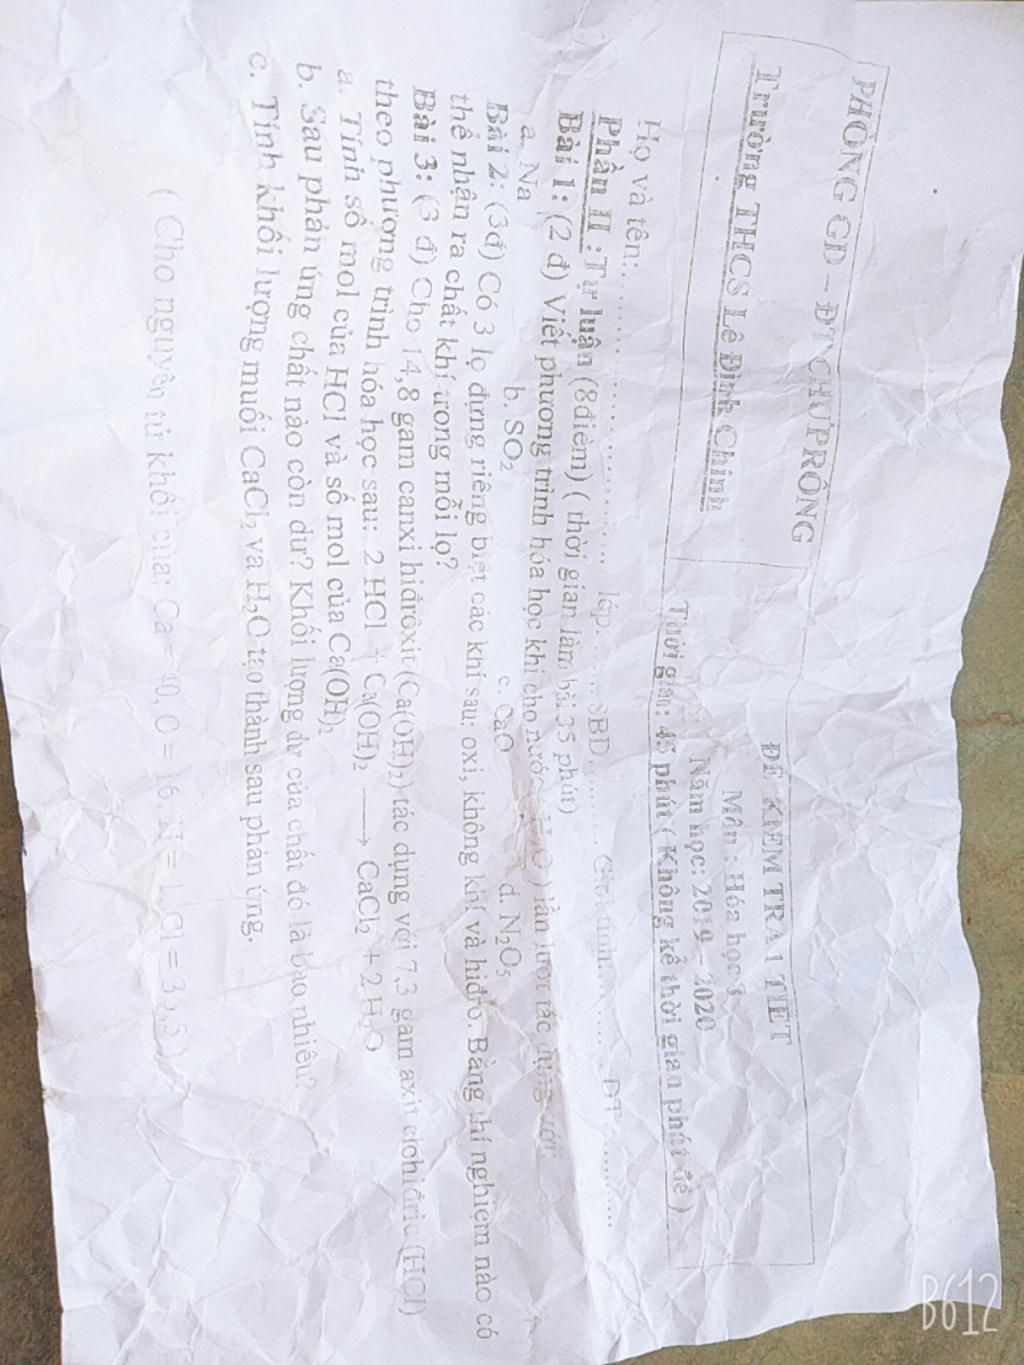 PHÒNG GD – ĐT CHƯPRÔNG
Trường THCS Lê Đình Chinh
ĐỀ KIỂM TRA 1 TIẾT
Môn : Hóa học 8
Năm học: 2019 – 2020
Thời gian: 45 phút ( Không kể thời gian phát đề )
Họ và tên:.............................. lớp:........SBD......... Giới tính:...........DT...............
Phần II : Tự luận (8điểm) ( thời gian làm bài 35 phút)
Bài 1: (2 đ) Viết phương trình hóa học khi cho nước ( H₂O ) lần lượt tác dụng với:
a. Na b. SO₂ c. CaO d. N₂O₅
Bài 2: (3đ) Có 3 lọ đựng riêng biệt các khí sau: oxi, không khí và hiđro. Bằng thí nghiệm nào có
thể nhận ra chất khí trong mỗi lọ?
Bài 3: (3 đ) Cho 14,8 gam canxi hiđrôxit (Ca(OH)₂) tác dụng với 7,3 gam axit clohiđric (HCl)
theo phương trình hóa học sau: 2 HCl + Ca(OH)₂ ⟶ CaCl₂ + 2 H₂O
a. Tính số mol của HCl và số mol của Ca(OH)₂
b. Sau phản ứng chất nào còn dư? Khối lượng dư của chất đó là bao nhiêu?
c. Tính khối lượng muối CaCl₂ và H₂O tạo thành sau phản ứng.
( Cho nguyên tử khối của: Ca = 40, O = 16, H = 1, Cl = 35,5 )
B612